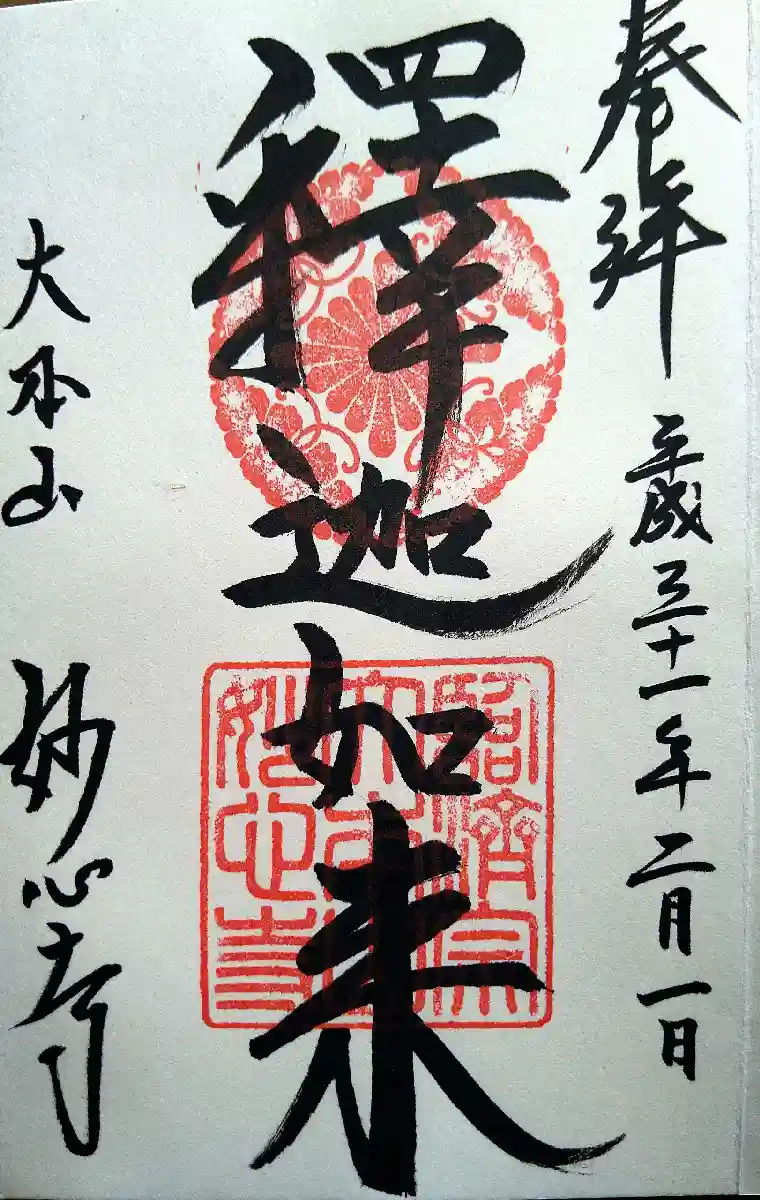 奉拝
平成三十一年二月一日
釋迦如来
臨濟宗
大本山
妙心寺
大本山
妙心寺